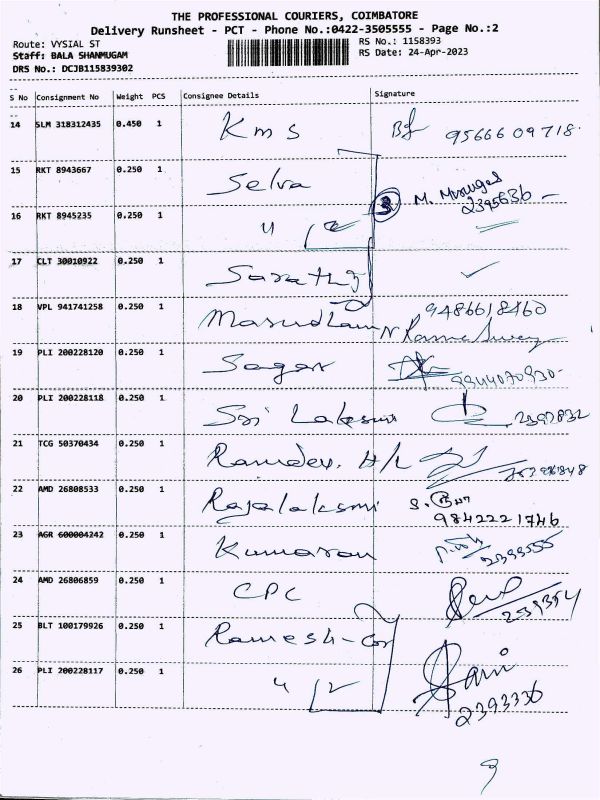 THE PROFESSIONAL COURIERS, COIMBATORE
Delivery Runsheet - PCT - Phone No.:0422-3505555 - Page No.:2
Route: VYSIAL ST
RS No.: 1158393
Staff: BALA SHANMUGAM
RS Date: 24-Apr-2023
DRS No.: DCJB115839302
S No Consignment No Weight PCS Consignee Details Signature
14 SLM 318312435 0.450 1 Kms 9566609718
15 RKT 8943667 0.250 1 Selva
3 M. Murugan 2395636
16 RKT 8945235 0.250 1 " 2
17 CLT 30010922 0.250 1 Sarathy
18 VPL 941741258 0.250 1 9486618460
19 PLI 200228120 0.250 1 Sagar 9944070930
20 PLI 200228118 0.250 1 Sri Laksmi 2392832
21 TCG 50370434 0.250 1 Ramdev. H/L
22 AMD 26808533 0.250 1 Rajalaksmi
9842221746
23 AGR 600004242 0.250 1 Kumaran 2399555
24 AMD 26806859 0.250 1 CPC
25 BLT 100179926 0.250 1 Ramesh-Cor
26 PLI 200228117 0.250 1 " 2 Sami
2393336